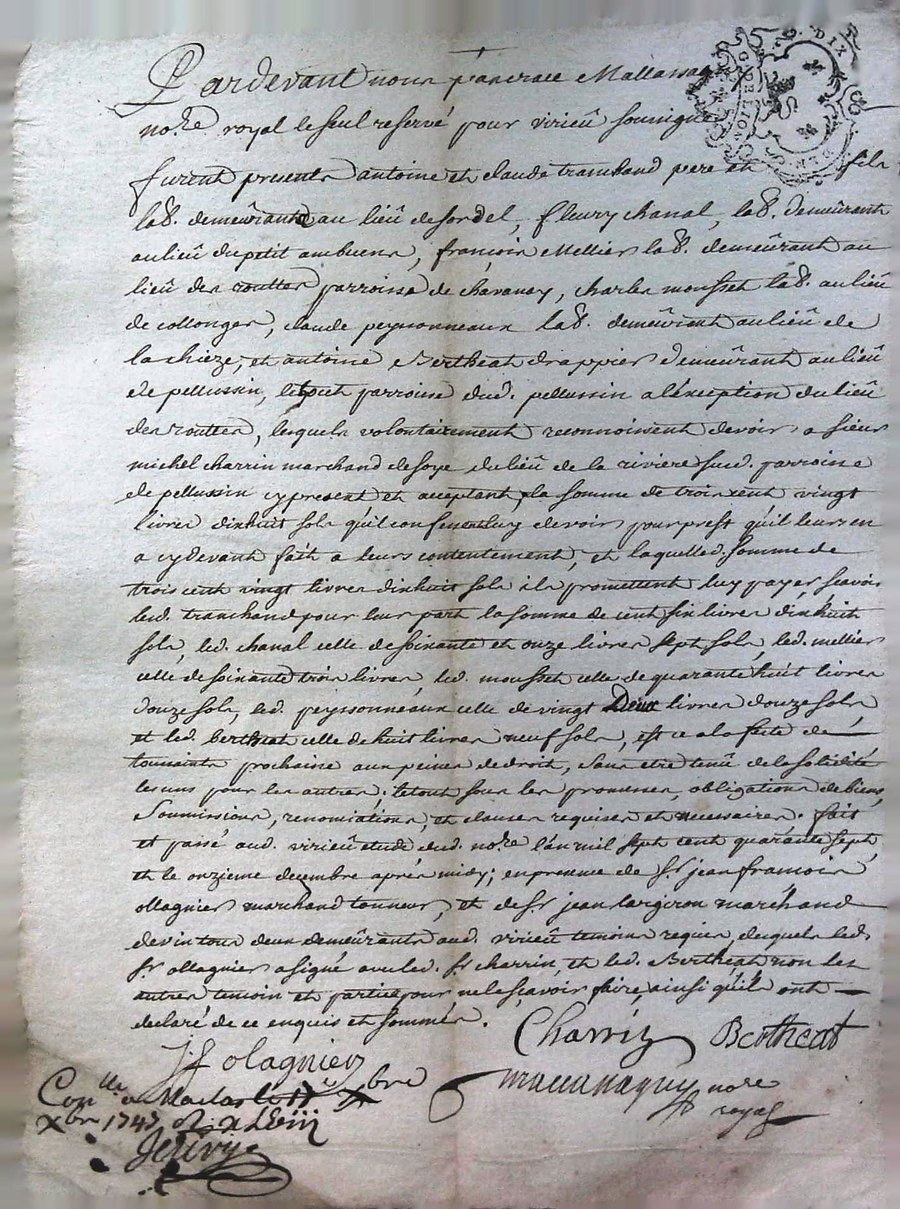 Pardevant nous pancrace Mallassa
no.re royal le seul reservé pour virieû souvigne
furent presents antoine et claude tranchand pere et fils
lab. demeûrants au lieû de sardel, fleury chanal, lab. demeûrant
au lieû du petit ambuent, françois Mellier lab. demeûrant au
lieû des routtes parroisse de chavanay, charles mousset lab. au lieû
de collonges, claude peyssonneaux lab. demeûrant au lieû de
la chieze, et antoine Bertheat drappier demeûrant au lieû
de pellussin, le tout parroisse dud. pellussin a l'éxception du lieû
des routtes, lesquels volontairement reconnoissent devoir a sieur
michel charrin marchand de soye du lieû de la riviere sud. parroisse
de pellussin cy present et acceptant, la somme de trois cent vingt
livres dixhuit sols qu'il confessent luy devoir pour prest qu'il leurs en
a cydevant fait a leurs contentement, et laquelle d. somme de
trois cent vingt livres dixhuit sols ils promettent luy payer, scavoir
led. tranchand pour leur part la somme de cent six livres dixhuit
sols, led. chanal celle de soixante et onze livres sept sols, led. mellier
celle de soixante trois livres, led. mousset celle de quarante huit livres
douze sols, led. peyssonneaux celle de vingt Deux livres douze sols
et led. bertheat celle de huit livres neuf sols, et ce a la feste de
toussaints prochaine aux peines de droit, sans etre tenû de la solidité
les uns pour les autres; le tout sous les promesses, obligations de biens,
soumissions, renonciations, et clauses requises et necessaires. fait
et passé aud. virieû etude dud. no.re l'an mil sept cent quarante sept
et le onzieme decembre aprés midy; en presence de Sr. jean françois
ollagnier marchand tanneur, et de Sr. jean largeron marchand
de vin tous deux demeûrants aud. virieû temoins requis, desquels led.
Sr ollagnier a signé avec led. Sr charrin, et led. Bertheat non les
autres temoin et parties pour ne le sçavoir faire, ainsi qu'ils ont
declaré de ce enquis et sommés.
Charrin Bertheat
J f olagnier
no.re
royal
Con.lle a Maclas le 17e Xbre
Xbre 1747